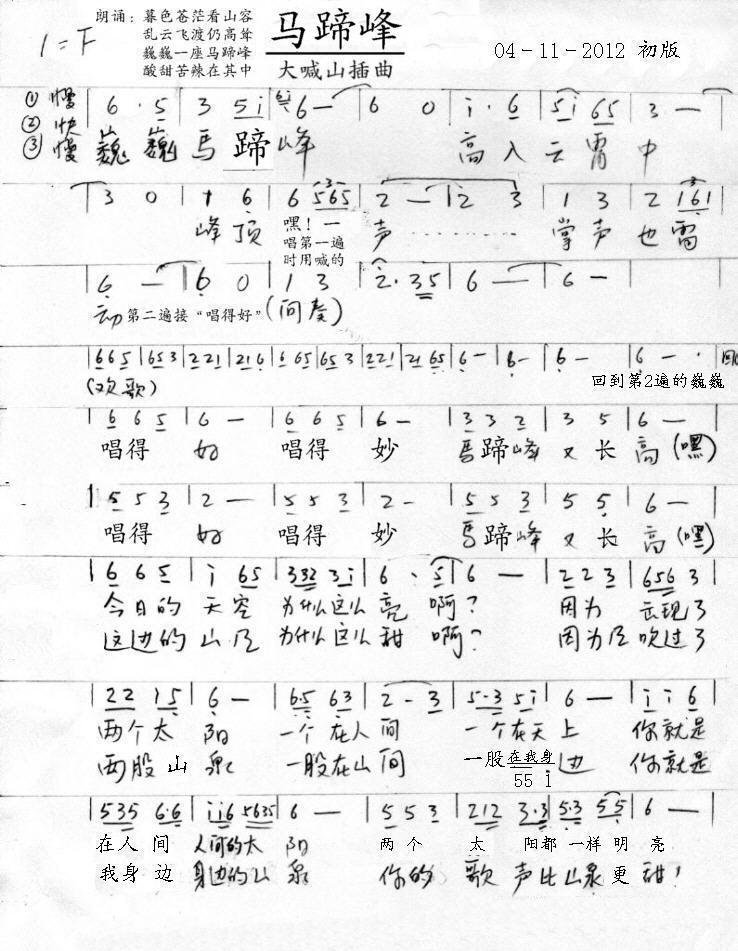 朗诵：暮色苍茫看山容
乱云飞渡仍高耸
巍巍一座马蹄峰
酸甜苦辣在其中
1=F
马蹄峰
大喊山插曲
04-11-2012 初版
① 慢
② 快
③ 慢
6 · 5 | 3 5 i | 6 — | 6 0 | i · 6 | 5 i 6 5 | 3 — |
巍 巍 马 蹄 峰 高 入 云 霄 中
3 0 | 1 6 | 6 5 6 5 | 2 — | 2 3 | 1 3 | 2 1 6 1 |
峰 顶 嘿！一 声 ………… 掌 声 也 雷
唱第一遍
时用喊的
6 — | 6 0 | 1 3 | 2 · 3 5 | 6 — | 6 — |
动 第二遍接“唱得好” (间奏)
| 6 6 5 | 6 5 3 | 2 2 1 | 2 1 6 | 6 6 5 | 6 5 3 | 2 2 1 | 2 1 6 5 | 6 — | 6 — | 6 — | 6 — · |
(欢歌) 回到第2遍的巍巍
| 6 6 5 | 6 — | 6 6 5 | 6 — | 3 3 2 | 3 5 | 6 — |
唱得 好 唱得 妙 马蹄峰 又 长 高 (嘿)
| 5 5 3 | 2 — | 5 5 3 | 2 — | 5 5 3 | 5 5 | 6 — |
唱得 好 唱得 妙 马蹄峰 又 长 高 (嘿)
| 6 6 5 | i 6 5 | 3 3 2 3 i | 6 · 5 | 6 — | 2 2 3 | 6 5 6 3 |
今日的 天空 为什么这么 亮 啊？ 因为 出现了
这边的 山风 为什么这么 甜 啊？ 因为风吹过了
| 2 2 1 5 | 6 — | 6 · 5 6 3 | 2 — 3 | 5 · 3 5 i | 6 — | i i 6 |
两个太 阳 一个在人 间 一个在天上 你就是
两股山 泉 一股在山间 一股在我身 边 你就是
5 5 i
| 5 3 5 6 · 6 | i i 6 5 6 3 5 | 6 — | 5 5 3 | 2 1 2 3 · 3 | 5 · 3 5 5 | 6 — |
在人 间 人间的太 阳 两个 太 阳都一样明 亮
我身 边 身边的山 泉 你的 歌 声比山泉更 甜！